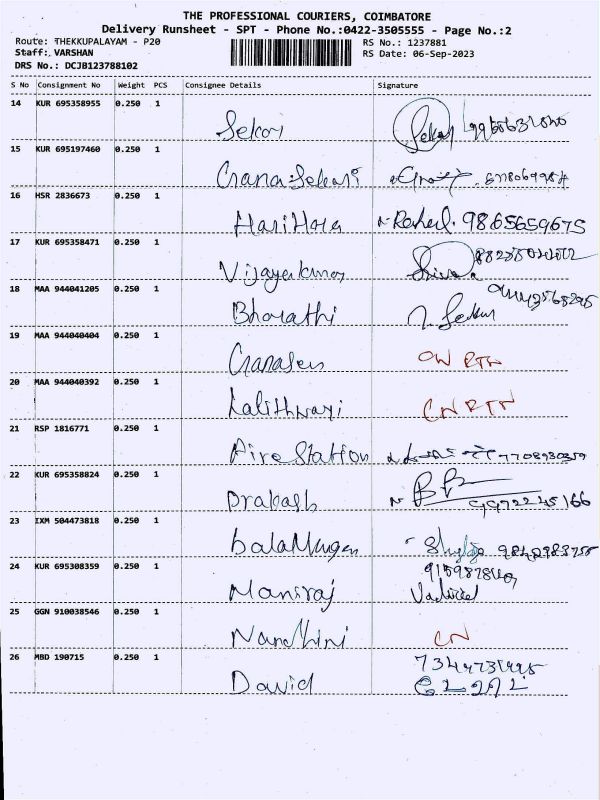 THE PROFESSIONAL COURIERS, COIMBATORE
Delivery Runsheet - SPT - Phone No.:0422-3505555 - Page No.:2
Route: THEKKUPALAYAM - P20 RS No.: 1237881
Staff: VARSHAN RS Date: 06-Sep-2023
DRS No.: DCJB123788102
S No Consignment No Weight PCS Consignee Details Signature
14 KUR 695358955 0.250 1
Sekar
15 KUR 695197460 0.250 1
Gnana Sekari
16 HSR 2836673 0.250 1
HariHara Rahul. 9865659675
17 KUR 695358471 0.250 1
Vijayakumar
18 MAA 944041205 0.250 1
Bharathi Sekar
19 MAA 944040404 0.250 1
Gnanasen CN RTN
20 MAA 944040392 0.250 1
Lalithwayi CN RTN
21 RSP 1816771 0.250 1
Fire Station 7708930359
22 KUR 695358824 0.250 1
Prakash
23 IXM 504473818 0.250 1
balaMurgan
24 KUR 695308359 0.250 1
Maniraj
25 GGN 910038546 0.250 1
Nandhini CN
26 MBD 190715 0.250 1
David